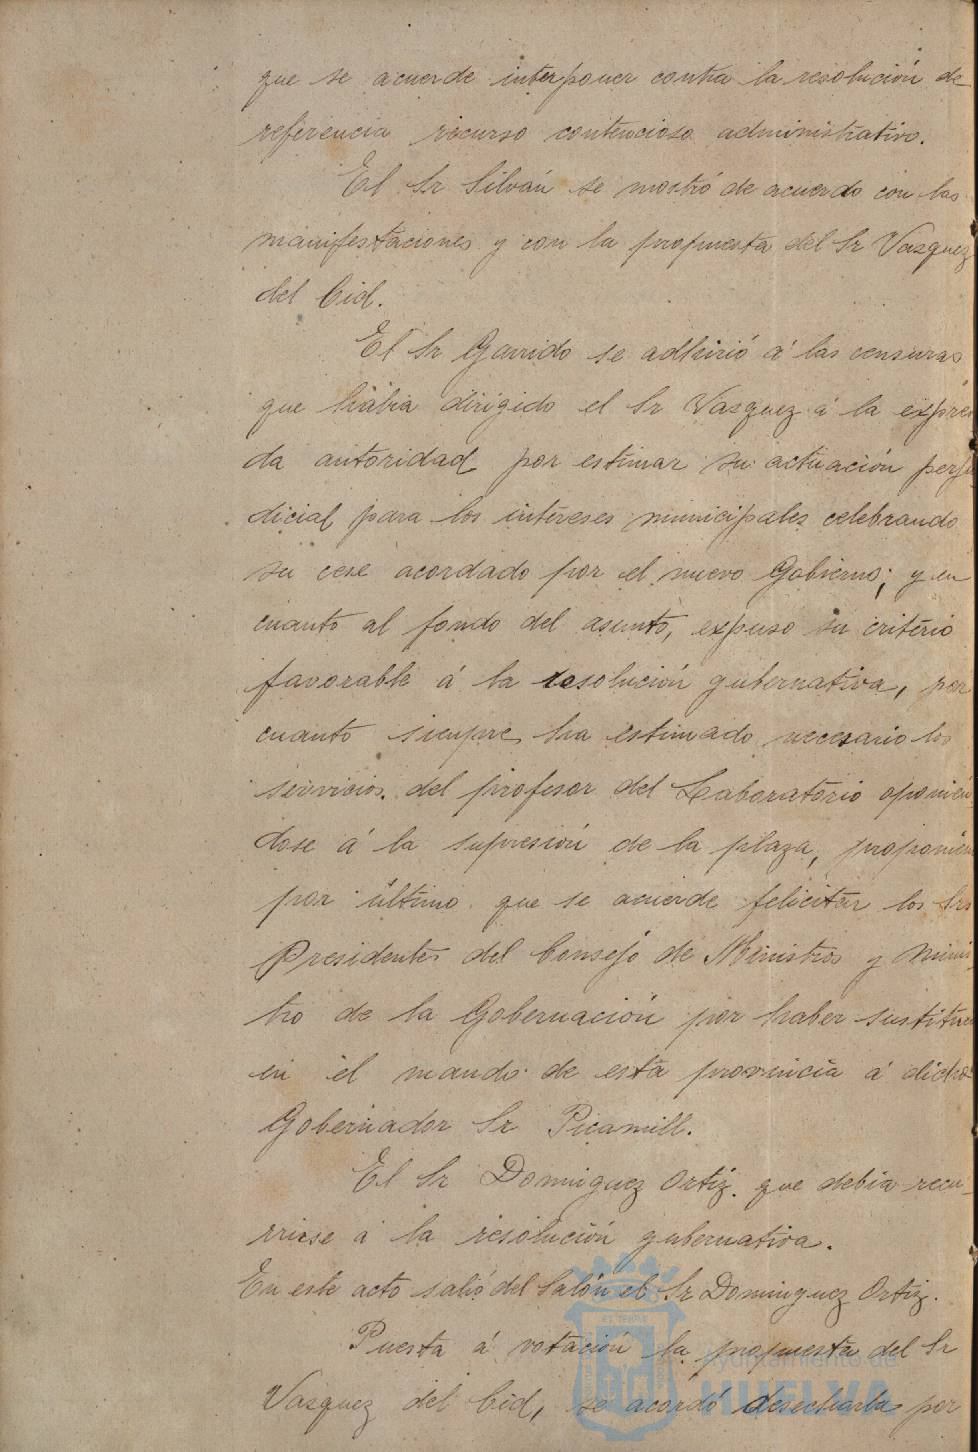 que se acuerde interponer contra la resolución de
referencia recurso contencioso administrativo.
El Sr Silván se mostró de acuerdo con las
manifestaciones y con la propuesta del Sr Vazquez
del Cid.
El Sr Garrido se adhirió á las censuras
que había dirigido el Sr Vazquez á la expre
da autoridad por estimar su actuación perju
dicial para los intereses municipales celebrando
su cese acordado por el nuevo Gobierno; y en
cuanto al fondo del asunto, expuso su criterio
favorable á la resolución gubernativa, por
cuanto siempre ha estimado necesario los
servicios del profesor del Laboratorio oponien
dose á la supresión de la plaza, proponien
por último que se acuerde felicitar los Srs
Presidentes del Consejo de Ministros y Minis
tro de la Gobernación por haber sustitui
en el mando de esta provincia á dicho
Gobernador Sr Picamill.
El Sr Dominguez Ortiz. que debia recu-
rrirse á la resolución gubernativa.
En este acto salió del Salón el Sr Dominguez Ortiz.
Puesta á votación la propuesta del Sr
Vazquez del Cid, se acordó desecharla por
Ayuntamiento de
HUELVA